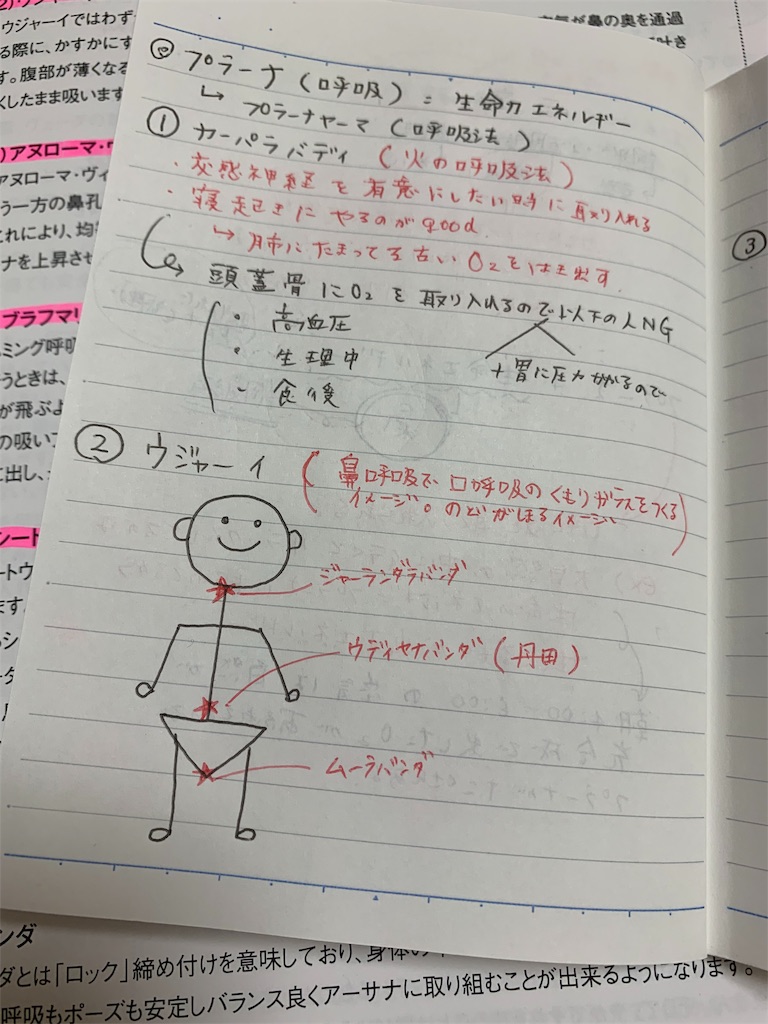 ウジャーイではわず
る際に、かすかにす
す。腹部が薄くなる
くしたまま吸います
気が鼻の奥を通過
)アヌローマ・ヴ
アヌローマ・ヴィ
う一方の鼻孔
これにより、均
ナを上昇させ
ブラフマリ
ミング呼吸
うときは、
が飛ぶよ
の吸い
に出し、
シート
ートウ
ます。
るシ
プラーナ(呼吸)=生命力エネルギー
↳ プラーナヤーマ(呼吸法)
① カーパラバディ(火の呼吸法)
・交感神経を有意にしたい時に取り入れる
・寝起きにやるのがgood.
↳ 肺にたまってる古いO₂をはき出す.
頭蓋骨にO₂を取り入れるので以下の人NG
・高血圧
・生理中
・食後
+胃に圧力かかるので
② ウジャーイ
(鼻呼吸で、口呼吸のくもりガラスをつくる
イメージ。のどがほるイメージ)
ジャーランダラバンダ
ウディヤナバンダ(丹田)
ムーラバンダ
③
ンダ
ダとは「ロック」締め付けを意味しており、身体の
呼吸もポーズも安定しバランス良くアーサナに取り組むことが出来るようになります。